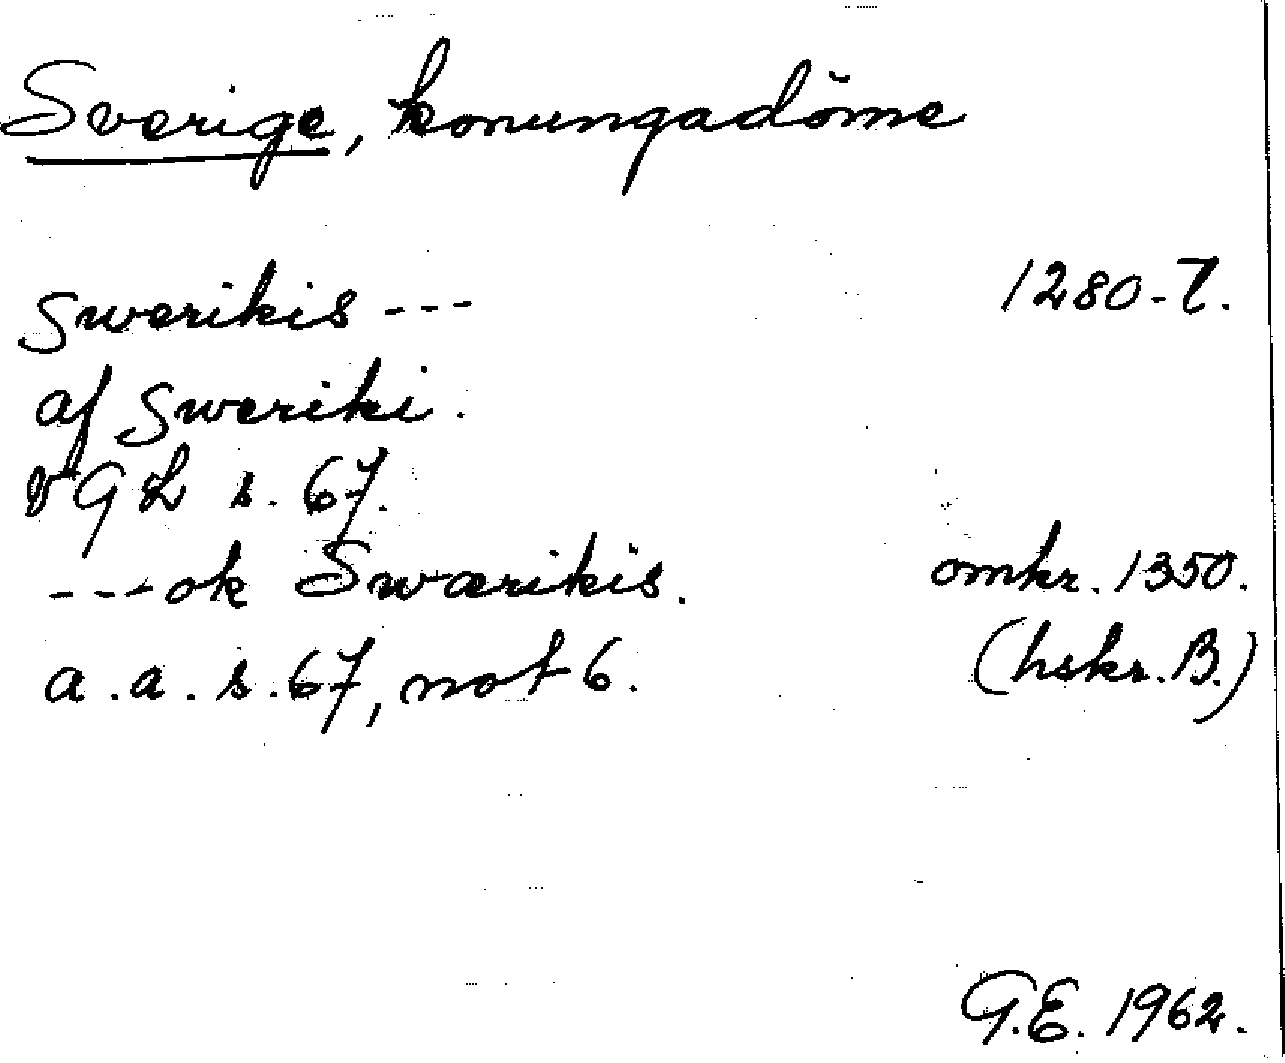 Sverige, konungadöme
Swerikis --- 1280-t.
af Sweriki.
VGL s. 67.
--- ok Swærikis. omkr. 1350.
a.a. s. 67, not 6. (hskr. B.)
G.E. 1962.